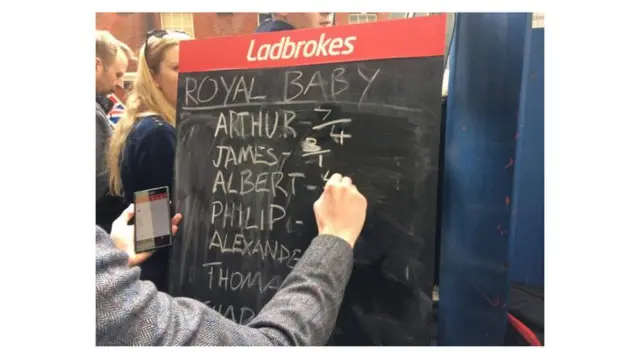 Ladbrokes
ROYAL BABY
ARTHUR - 7/4
JAMES - 8/1
ALBERT -
PHILIP -
ALEXANDE
THOMA